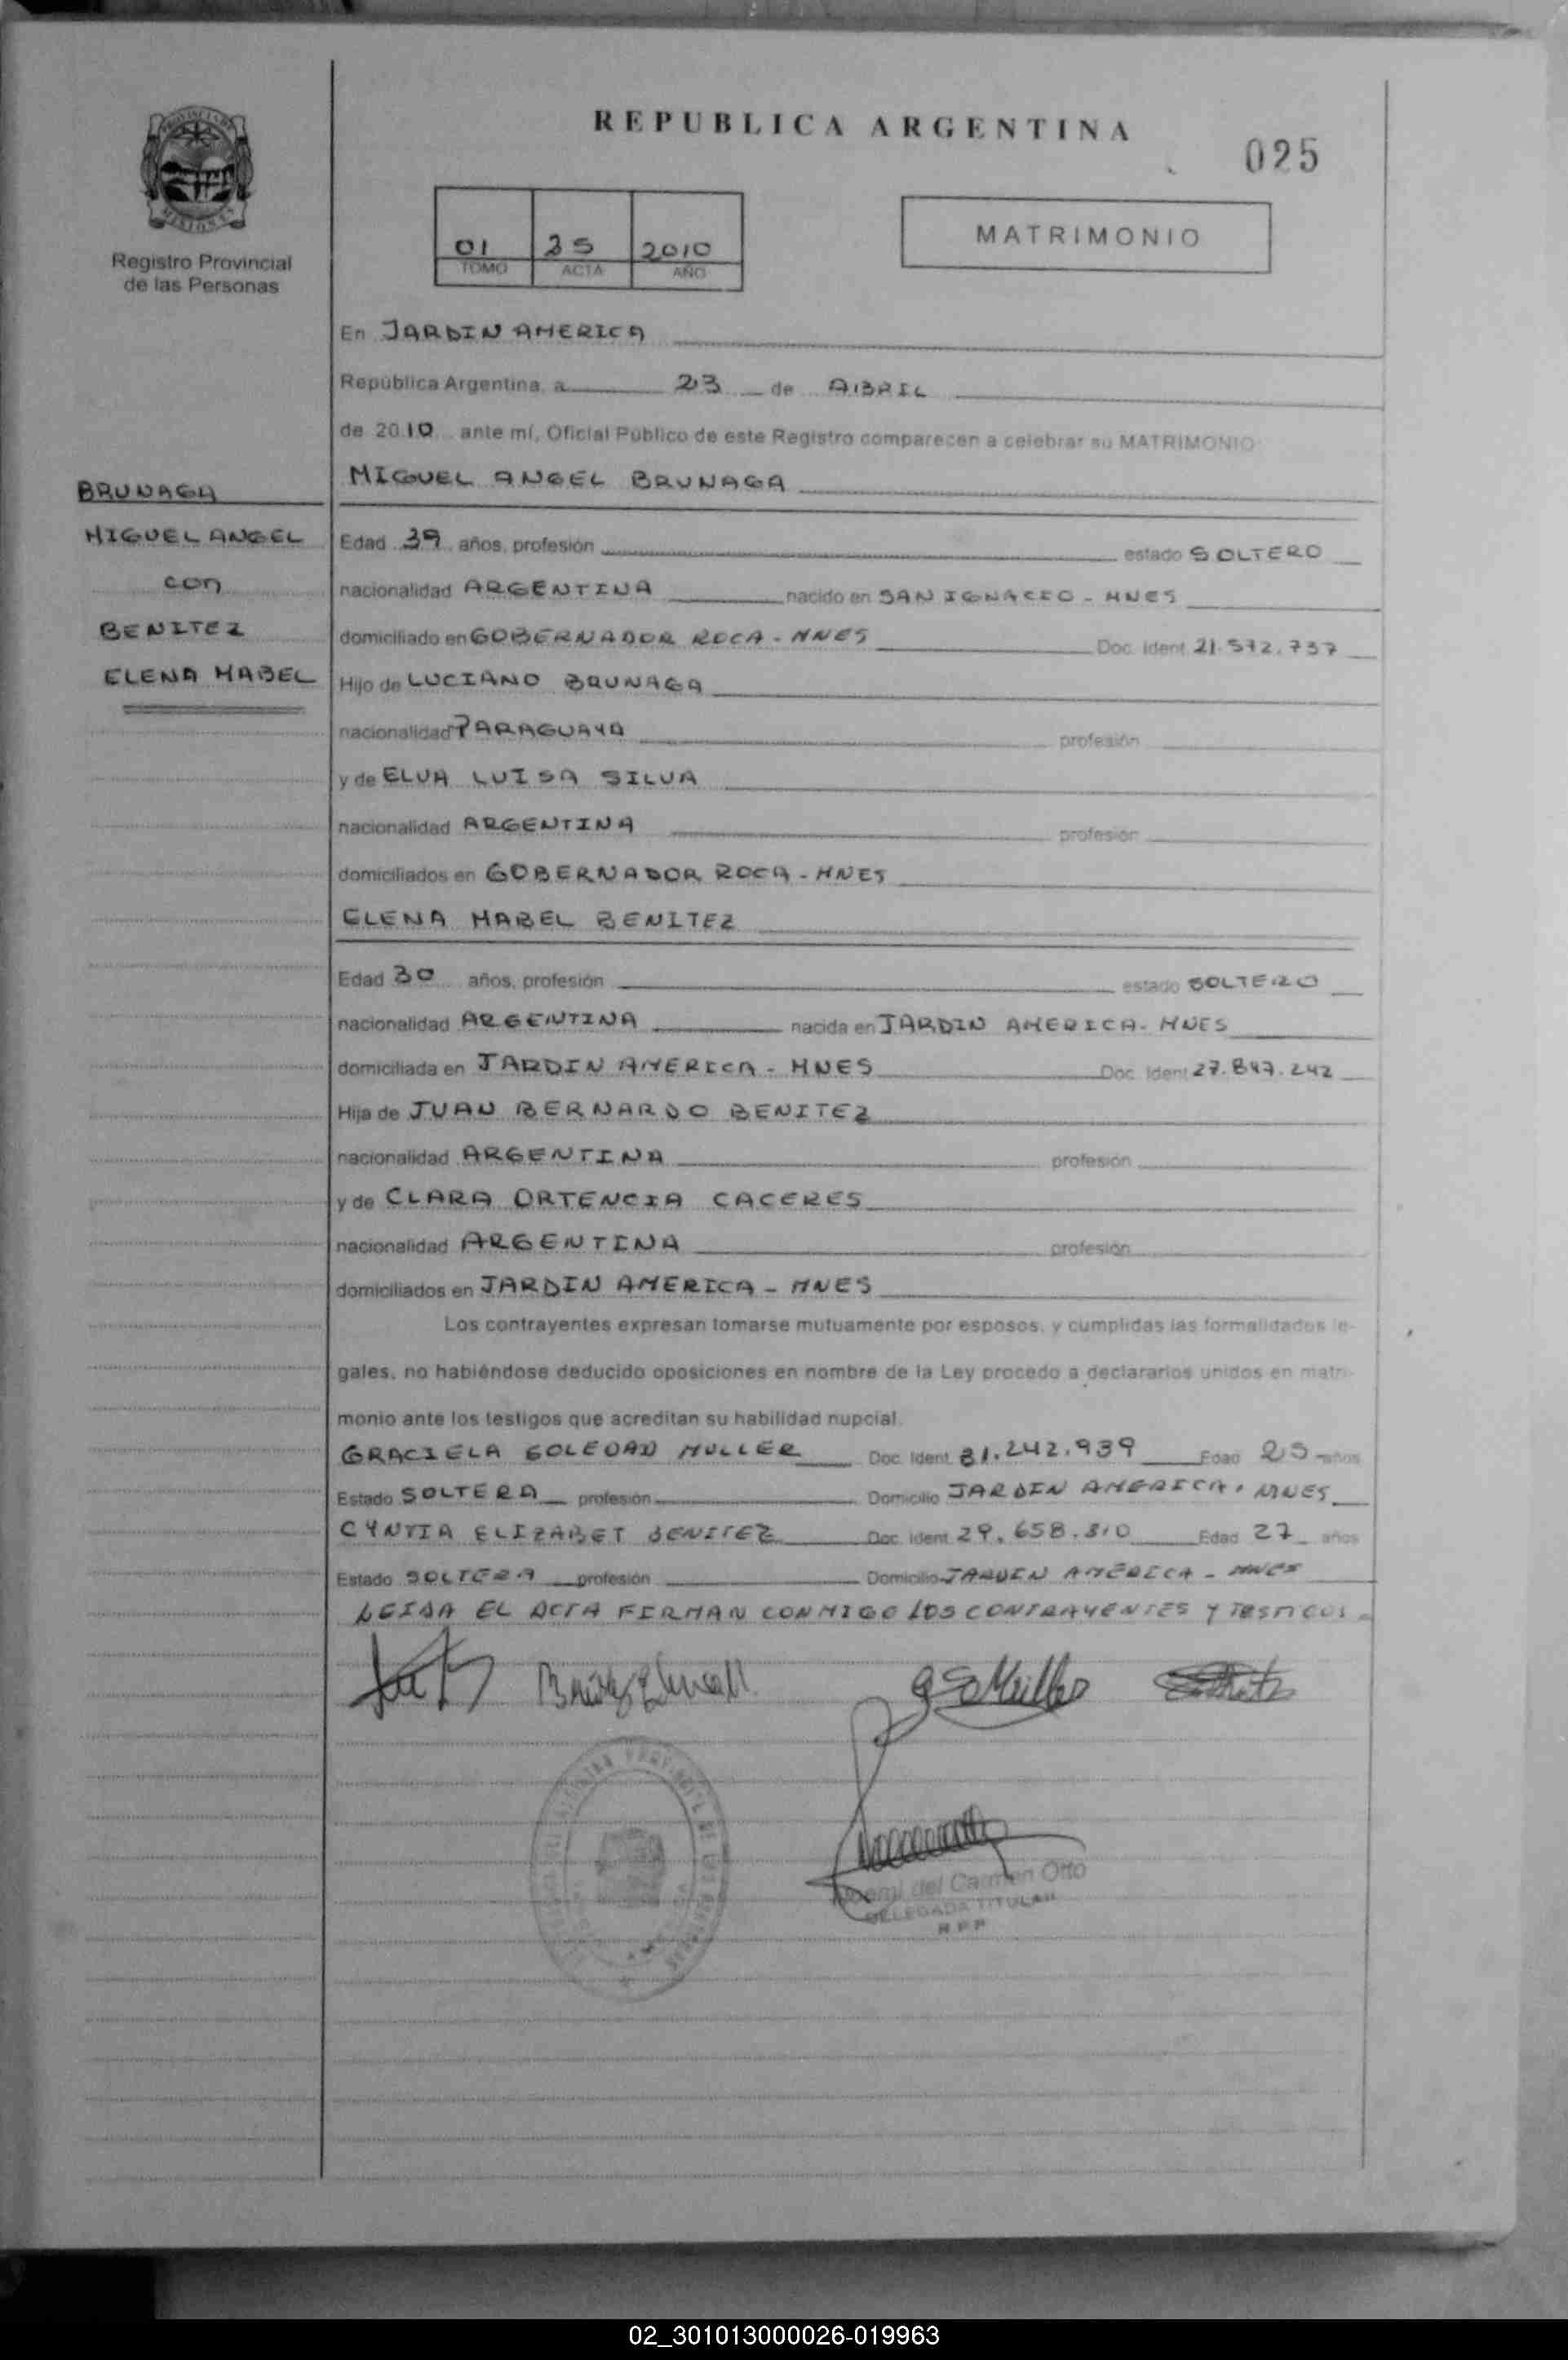 REPUBLICA ARGENTINA
025
PROVINCIA DE
MISIONES
Registro Provincial
de las Personas
01 25 2010
TOMO ACTA AÑO
MATRIMONIO
En JARDIN AMERICA
República Argentina, a 23 de ABRIL
de 2010 ante mí, Oficial Público de este Registro comparecen a celebrar su MATRIMONIO
BRUNAGA
MIGUEL ANGEL
con
BENITEZ
ELENA MABEL
MIGUEL ANGEL BRUNAGA
Edad 39 años, profesión estado SOLTERO
nacionalidad ARGENTINA nacido en SAN IGNACIO - MNES
domiciliado en GOBERNADOR ROCA - MNES Doc. Ident 21.572.737
Hijo de LUCIANO BRUNAGA
nacionalidad PARAGUAYA profesión
y de ELVA LUISA SILVA
nacionalidad ARGENTINA profesión
domiciliados en GOBERNADOR ROCA - MNES
ELENA MABEL BENITEZ
Edad 30 años, profesión estado SOLTERO
nacionalidad ARGENTINA nacida en JARDIN AMERICA - MNES
domiciliada en JARDIN AMERICA - MNES Doc. Ident 27.847.242
Hija de JUAN BERNARDO BENITEZ
nacionalidad ARGENTINA profesión
y de CLARA ORTENCIA CACERES
nacionalidad ARGENTINA profesión
domiciliados en JARDIN AMERICA - MNES
Los contrayentes expresan tomarse mutuamente por esposos, y cumplidas las formalidades le-
gales, no habiéndose deducido oposiciones en nombre de la Ley procedo a declararlos unidos en matri-
monio ante los testigos que acreditan su habilidad nupcial.
GRACIELA SOLEDAD MULLER Doc. Ident. 31.242.939 Edad 25 años
Estado SOLTERA profesión Domicilio JARDIN AMERICA, MNES
CYNTIA ELIZABET BENITEZ Doc. Ident. 29.658.310 Edad 27 años
Estado SOLTERA profesión Domicilio JARDIN AMERICA - MNES
LEIDA EL ACTA FIRMAN CONMIGO LOS CONTRAYENTES Y TESTIGOS
del Carmen Otto
DELEGADA TITULAR
R P P
02_301013000026-019963